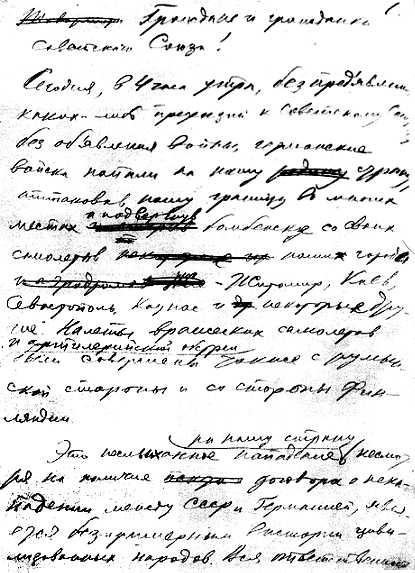 Граждане и гражданки
Советского Союза!
Сегодня, в 4 часа утра, без предъявления
каких-либо претензий к Советскому Союзу,
без объявления войны, германские
войска напали на нашу страну,
атаковав нашу границу во многих
местах и подвергнув бомбежке со своих
самолетов наши города
- Житомир, Киев,
Севастополь, Каунас и некоторые дру-
гие. Налеты вражеских самолетов
и артиллерийский обстрел
были совершены также с румын-
ской стороны и со стороны Фин-
ляндии
на нашу страну
Это неслыханное нападение, несмот-
ря на наличие договора о нена-
падении между СССР и Германией, явля-
ется беспримерным в истории циви-
лизованных народов. Вся ответственн